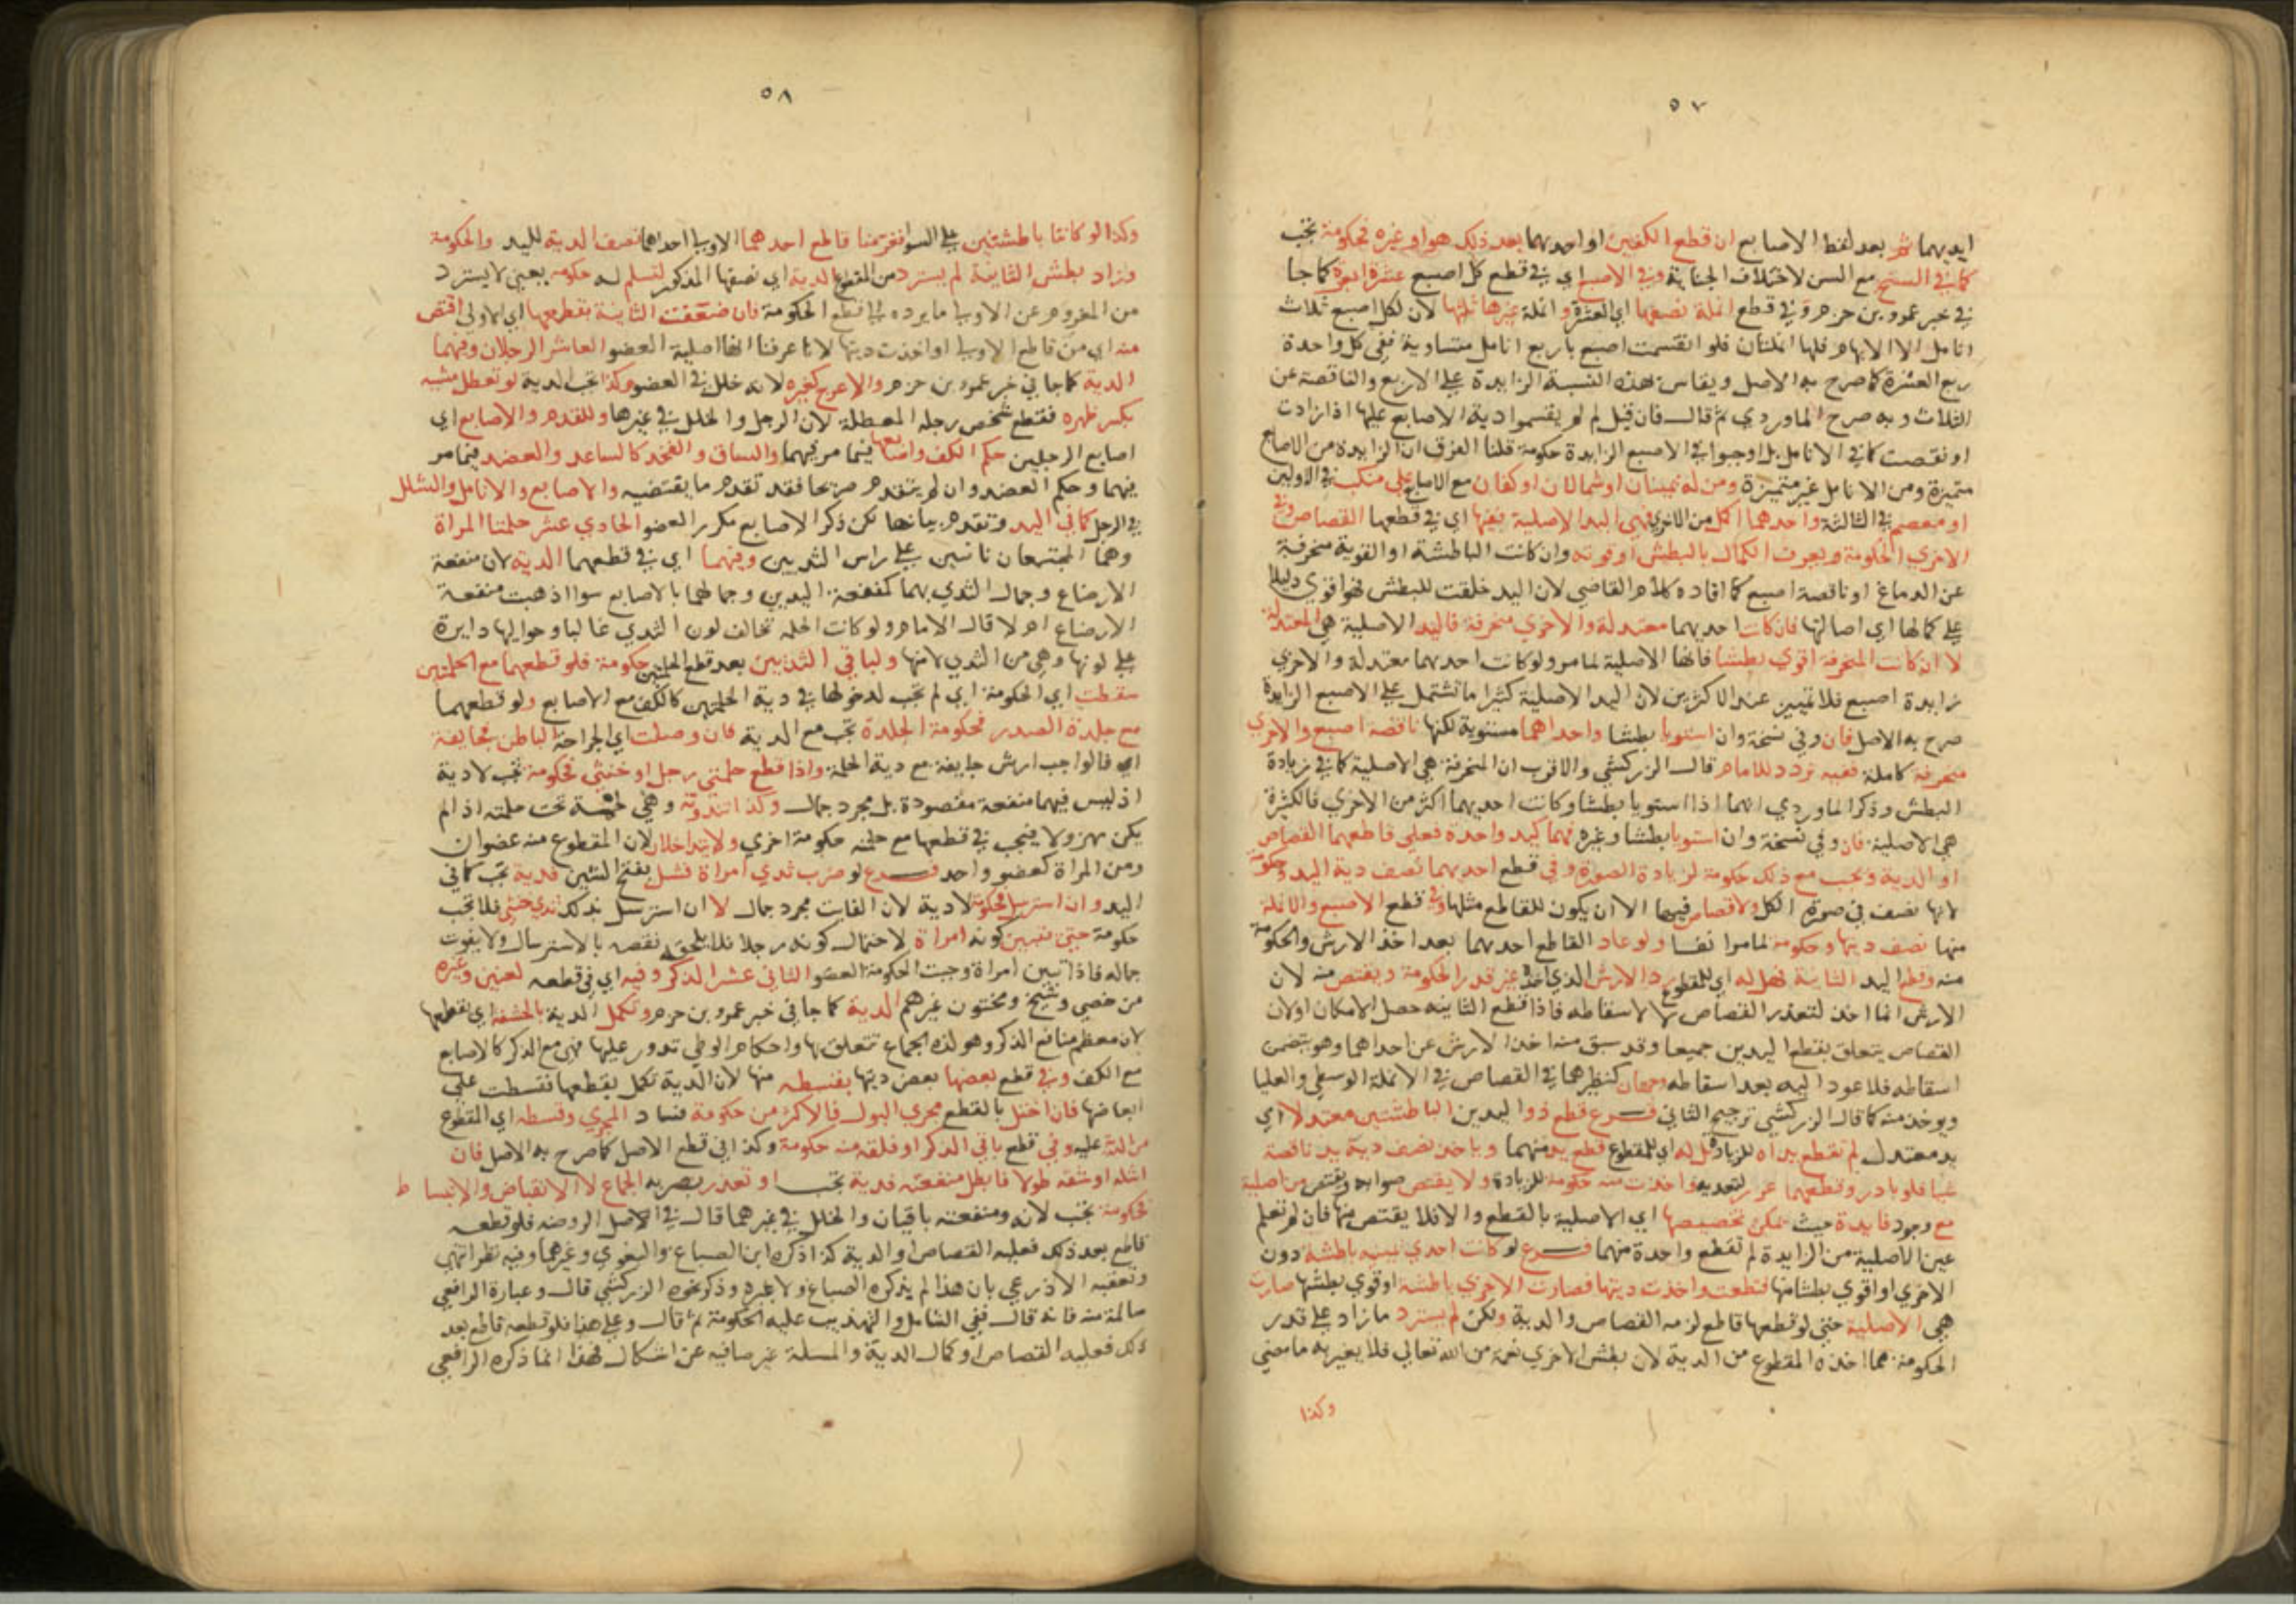 ٥٧
ايديهما ثم بعد لفظ الاصابع ان قطع الكفين او احديهما بعد ذلك هو او غيره فحكومة تجب
كما في السنخ مع السن لاختلاف الجناية وفي الاصبع اي في قطع كل اصبع عشرة ابعرة كما جا
في خبر عمرو بن حزم وفي قطع انملة نصفها اي العشرة وانملة غيرها ثلثها لان لكل اصبع ثلاث
انامل الا الابهام فلها انملتان فلو انقسمت اصبع باربع انامل متساوية ففي كل واحدة
ربع العشرة كما صرح به الاصل ويقاس بهذه النسبة الزايدة علي الاربع والناقصة عن
الثلاث وبه صرح الماوردي ثم قال فان قيل لم لم يقسموا دية الاصابع عليها اذا زادت
او نقصت كما في الانامل بل اوجبوا في الاصبع الزايدة حكومة قلنا الفرق ان الزايدة من الاصابع
متميزة ومن الانامل غير متميزة ومن له يمينان او شمالان او كفان مع الاصابع علي منكب في الاوليين
او معصم في الثالثة واحدهما اكمل من الاخري فهي اليد الاصلية ففيها اي في قطعها القصاص وفي
الاخري الحكومة ويعرف الكمال بالبطش او قوته وان كانت الباطشة او القوية منحرفة
عن الدماغ او ناقصة اصبع كما افاده كلام القاضي لان اليد خلقت للبطش فهو اقوي دليلا
علي كمالها اي اصالتها فان كانت احديهما معتدلة والاخري منحرفة فاليد الاصلية هي المعتدلة
لا ان كانت المنحرفة اقوي بطشا فانها الاصلية لما مر ولو كانت احديهما معتدلة والاخري
زايدة اصبع فلا تمييز عند الاكثرين لان اليد الاصلية كثيرا ما تشتمل علي الاصبع الزايدة
صرح به الاصل فان وفي نسخة وان استويا بطشا واحداهما مستوية لكنها ناقصة اصبع والاخري
منحرفة كاملة ففيه تردد للامام قال الزركشي والاقرب ان المنحرفة هي الاصلية كما في زيادة
البطش وذكر الماوردي انهما اذا استويا بطشا وكانت احديهما اكثر من الاخري فالكثيرة
هي الاصلية فان وفي نسخة وان استويا بطشا وغيره فهما كيد واحدة فعلي قاطعهما القصاص
او الدية وتجب مع ذلك حكومة لزيادة الصورة وفي قطع احديهما نصف دية اليد وحكومة
لانها نصف في صورة الكل ولا قصاص فيها الا ان يكون للقاطع مثلها وفي قطع الاصبع والانملة
منها نصف ديتها وحكومة لما مر انفا ولو عاد القاطع احديهما بعد اخذ الارش والحكومة
منه وقطع اليد الثانية فهل له اي للمقطوع رد الارش الذي اخذه غير قدر الحكومة ويقتص منه لان
الارش انما اخذ لتعذر القصاص لا لاسقاطه فاذا قطع الثانيه حصل الامكان او لا لان
القصاص يتعلق بقطع اليدين جميعا وقد سبق منه اخذ الارش عن احداهما وهو يتضمن
اسقاطه فلا عود اليه بعد اسقاطه وجهان كنظيرهما في القصاص في الانملة الوسطي والعليا
ويوخذ منه كما قال الزركشي ترجيح الثاني فرع قطع ذو اليدين الباطشتين معتدلا اي
يد معتدل لم تقطع يداه للزيادة بل له اي للمقطوع قطع يد منهما وياخذ نصف دية يد ناقصة
شيا فلو بادر وقطعهما عزر لتعديه واخذت منه حكومة للزيادة ولا يقتص صوابه ويقتص من اصلية
مع وجود فايدة حيث يمكن تخصيصها اي الاصلية بالقطع والا فلا يقتص منها فان لم تعلم
عين الاصلية من الزايدة لم تقطع واحدة منهما فرع لو كانت احدي يديه باطشة دون
الاخري او اقوي بطشا منها فقطعت واخذت ديتها فصارت الاخري باطشة او قوي بطشها صارت
هي الاصلية حتي لو قطعها قاطع لزمه القصاص والدية ولكن لم يسترد ما زاد علي قدر
الحكومة مما اخذه المقطوع من الدية لان بطش الاخري نعمة من الله تعالي فلا يغير به ما مضي
وكذا
٥٨
وكذا لو كانتا باطشتين علي السوا فغرمنا قاطع احدهما الاولي اي احداهما نصف الدية لليد والحكومة
وزاد بطش الثانية لم يسترد من المقطوع الدية اي نصفها المذكور لتسلم له حكومه يعني لا يسترد
من المغروم عن الاولي ما يرده الي قطع الحكومة فان ضعفت الثانية بقطعها اي الاولي اقتص
منه اي من قاطع الاولي او اخذت ديتها لانا عرفنا انها اصلية العضو العاشر الرجلان وفيهما
الدية كما جا في خبر عمرو بن حزم والاعرج كغيره لانه خلل في العضو وكذا تجب الدية لو تعطل مشيه
بكسر ظهره فقطع شخص رجله المعطلة لان الرجل والخلل في غيرها وللقدم والاصابع اي
اصابع الرجلين حكم الكف واصابعها فيما مر فيهما والساق والفخذ كالساعد والعضد فيما مر
فيهما وحكم العضد وان لم يتقدم صريحا فقد تقدم ما يقتضيه والاصابع والانامل والشلل
في الرجل كما في اليد وتقدم بيانها لكن ذكر الاصابع مكرر العضو الحادي عشر حلمتا المراة
وهما المجتمعان ناتيين علي راس الثديين وفيهما اي في قطعهما الدية لان منفعة
الارضاع وجمال الثدي بهما كمنفعة اليدين وجمالهما بالاصابع سوا اذهبت منفعة
الارضاع ام لا قال الامام ولو كانت الحلمه تخالف لون الثدي غالبا وحواليها دايرة
علي لونها وهي من الثدي لا منها ولباقي الثديين بعد قطع الحلمتين حكومة فلو قطعهما مع الحلمتين
سقطت اي الحكومة اي لم تجب لدخولها في دية الحلمتين كالكف مع الاصابع ولو قطعهما
مع جلدة الصدر فحكومة الجلدة تجب مع الدية فان وصلت اي الجراحة الباطن فجايفة
اي فالواجب ارش جايفة مع دية الحلمة واذا قطع حلمتي رجل او خنثي فحكومة تجب لا دية
اذ ليس فيهما منفعة مقصودة بل مجرد جمال وكذا ثندوته وهي لحمة تحت حلمته اذا لم
يكن مهزولا فيجب في قطعها مع حلمته حكومة اخري ولا يتداخلان لان المقطوع منه عضوان
ومن المراة كعضو واحد فرع لو ضرب ثدي امراة فشل بفتح الشين فدية تجب كما في
اليد وان استرسل فحكومة لا دية لان الفايت مجرد جمال لا ان استرسل بذلك ثدي خنثي فلا تجب
حكومة حتي تتبين كونه امراة لاحتمال كونه رجلا فلا يلحقه نقصه بالاسترسال ولا يفوت
جماله فاذا تبين امراة وجبت الحكومة العضو الثاني عشر الذكر وفيه اي في قطعه لعنين وغيره
من خصي وشيخ ومختون غيرهم الدية كما جا في خبر عمرو بن حزم وتكمل الدية بالحشفة اي بقطعها
لان معظم منافع الذكر وهو لذة الجماع تتعلق بها واحكام الوطي تدور عليها فهي مع الذكر كالاصابع
مع الكف وفي قطع بعضها بعض ديتها بقسطه منها لان الدية تكمل بقطعها فقسطت علي
ابعاضها فان اختل بالقطع مجري البول فالاكثر من حكومة فساد المجري وقسطه اي المقطوع
من الدية عليه وفي قطع باقي الذكر او فلقه منه حكومة وكذا في قطع الاصل كما صرح به الاصل فان
اشله او شقه طولا فابطل منفعته فدية تجب او تعذر بضربه الجماع لا الانقباض والانبساط
فحكومة تجب لانه ومنفعته باقيان والخلل في غيرهما قال في الاصل الروضه فلو قطعه
قاطع بعد ذلك فعليه القصاص او الدية كذا ذكره ابن الصباغ والبغوي وغيرهما وفيه نظر انتهي
وتعقبه الاذرعي بان هذا لم يذكره الصباغ ولا غيره وذكر نحوه الزركشي قال وعبارة الرافعي
سالمة منه فانه قال ففي الشامل والتهذيب عليه الحكومة ثم قال وعلي هذا فلو قطعه قاطع بعد
ذلك فعليه القصاص او كمال الدية والمسلة غير صافيه عن اشكال فهذا انما ذكره الرافعي